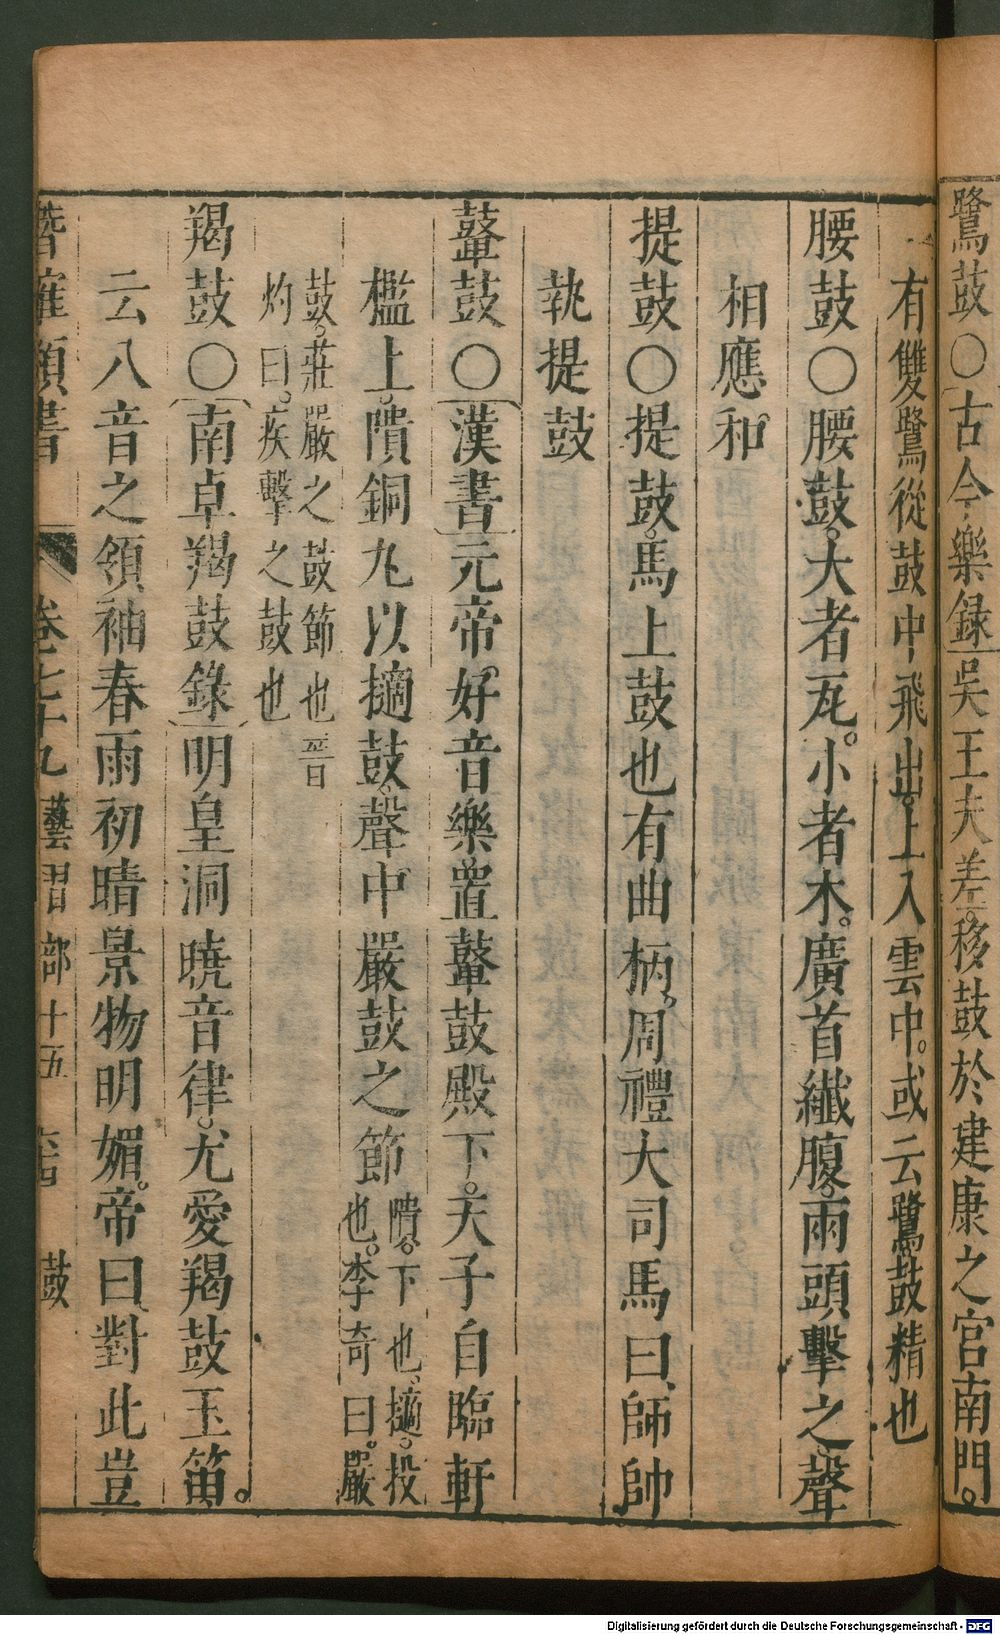 鷺鼓○古今樂録吳王夫差。移鼓於建康之宮南門。
有雙鷺從鼓中飛出。上入雲中。或云鷺鼓精也
腰鼓○腰鼓。大者瓦。小者木。廣首纖腹。兩頭擊之。聲
相應和。
提鼓○提鼓。馬上鼓也有曲柄。周禮大司馬曰、師帥
執提鼓
鼙鼓○漢書元帝。好音樂置鼙鼓殿下。天子自臨軒
檻上。隤銅丸以擿鼓。聲中嚴鼓之節
隤。下也、擿。投
也。李奇曰。嚴
鼓。莊嚴之鼓節也晉
灼曰。疾擊之鼓也
羯鼓○南卓羯鼓錄明皇洞曉音律。尤愛羯鼓玉笛。
云八音之領袖春雨初晴景物明媚。帝曰、對此豈
潛確類書
卷七十九 藝習部十五 鼓
Digitalisierung gefördert durch die Deutsche Forschungsgemeinschaft - DFG